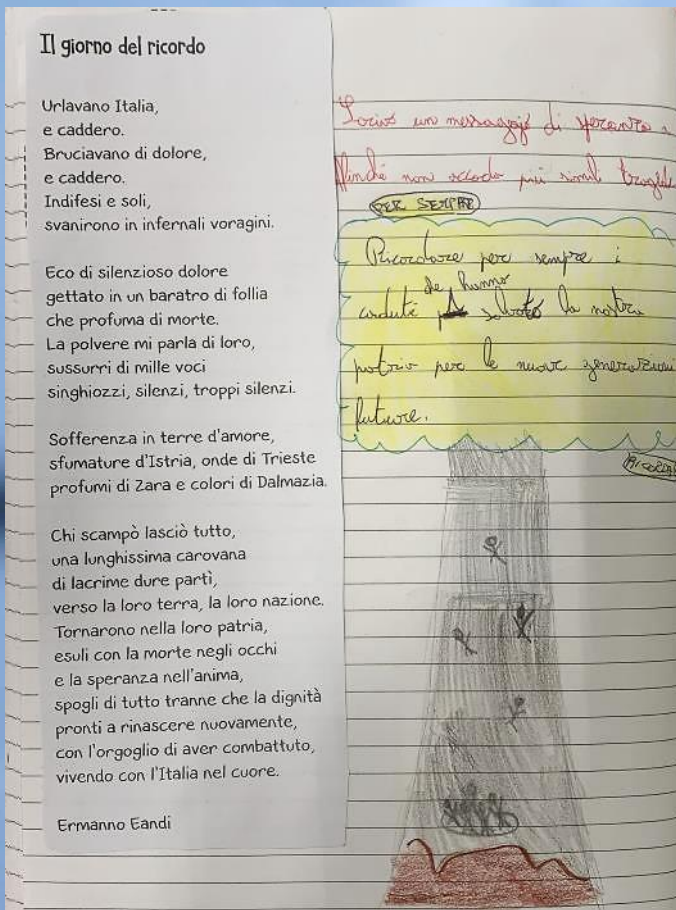 Il giorno del ricordo
Urlavano Italia,
e caddero.
Bruciavano di dolore,
e caddero.
Indifesi e soli,
svanirono in infernali voragini.
Eco di silenzioso dolore
gettato in un baratro di follia
che profuma di morte.
La polvere mi parla di loro,
sussurri di mille voci
singhiozzi, silenzi, troppi silenzi.
Sofferenza in terre d'amore,
sfumature d'Istria, onde di Trieste
profumi di Zara e colori di Dalmazia.
Chi scampò lasciò tutto,
una lunghissima carovana
di lacrime dure partì,
verso la loro terra, la loro nazione.
Tornarono nella loro patria,
esuli con la morte negli occhi
e la speranza nell'anima,
spogli di tutto tranne che la dignità
pronti a rinascere nuovamente,
con l'orgoglio di aver combattuto,
vivendo con l'Italia nel cuore.
Ermanno Eandi
un di speranza
non accada più simili
PER SEMPRE
Ricordare per sempre i
che hanno
caduti la nostra
patria per le nuove generazioni
future.